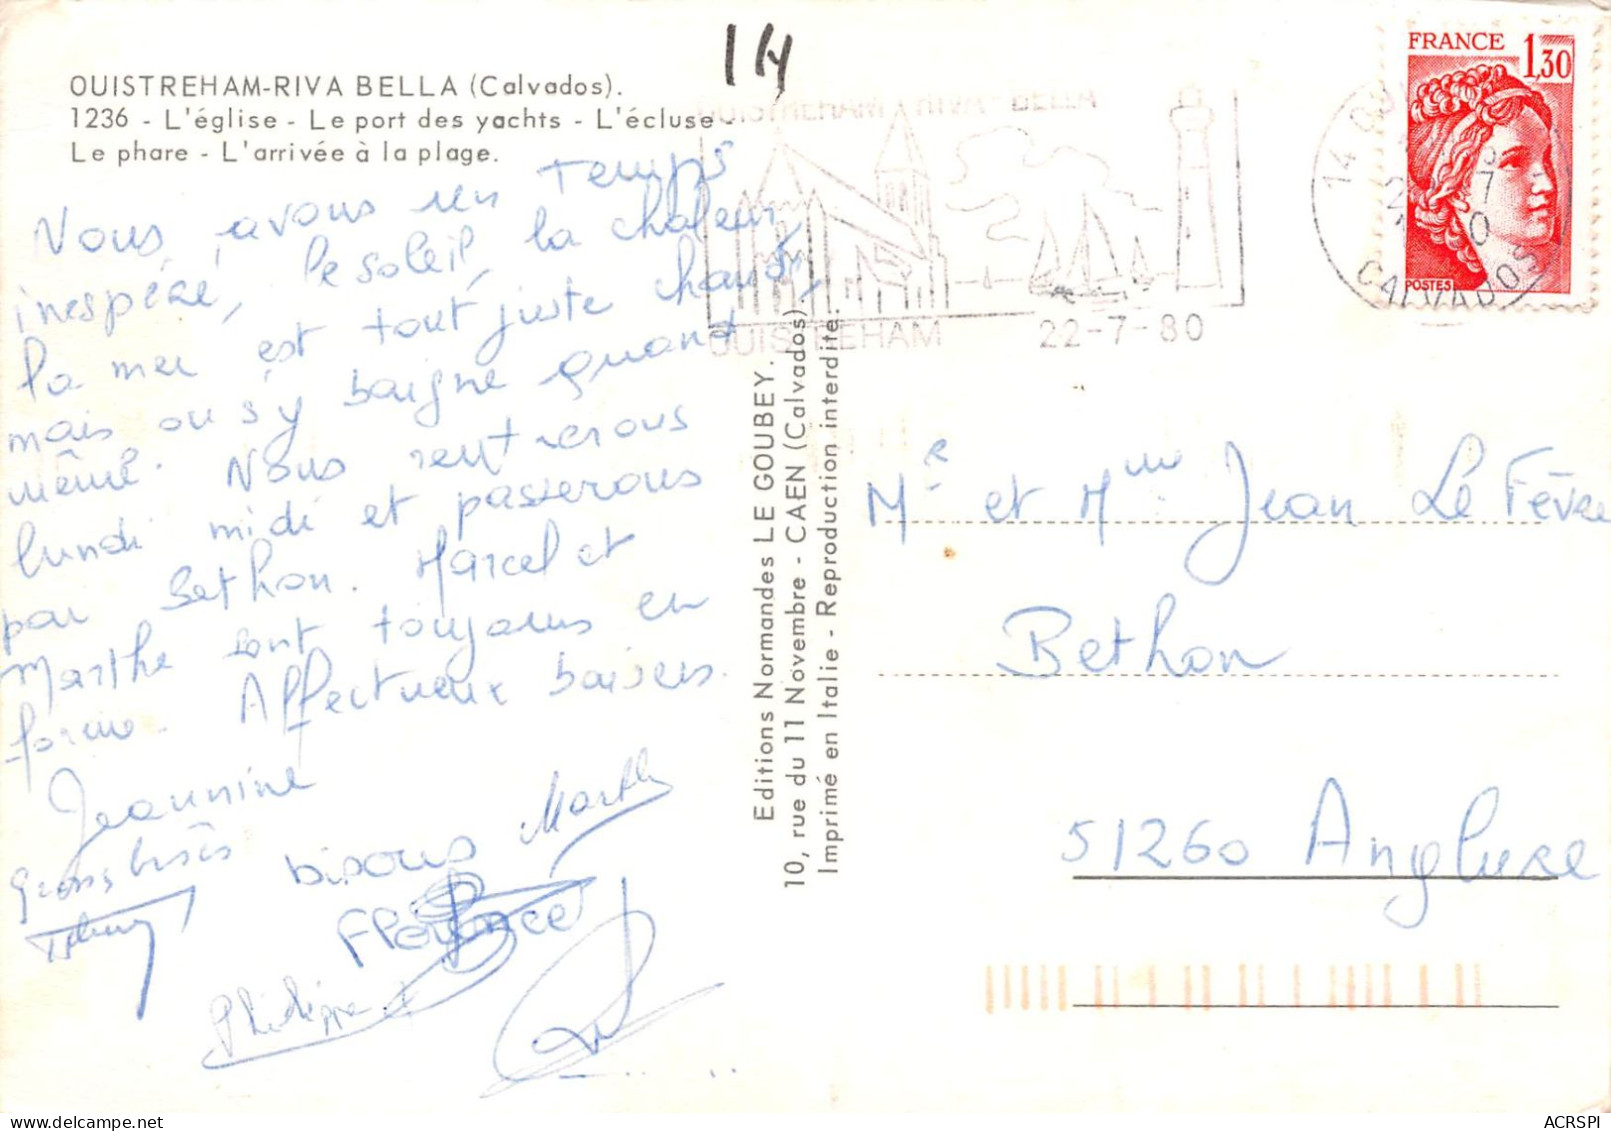 14
OUISTREHAM-RIVA BELLA (Calvados).
1236 - L'église - Le port des yachts - L'écluse
Le phare - L'arrivée à la plage.
Nous avons un temps
inespéré, le soleil, la chaleur,
la mer est tout juste chaude,
mais on s'y baigne quand
même. Nous rentrerons
lundi midi et passerons
par Bethon. Marcel et
Marthe sont toujours en
forme. Affectueux baisers.
Jeannine
Marthe
Gross bisès
bisous
Florence
Philippe
Editions Normandes LE GOUBEY.
10, rue du 11 Novembre - CAEN (Calvados).
Imprimé en Italie - Reproduction interdite.
OUISTREHAM RIVA BELLA
OUISTREHAM 22-7-80
FRANCE 1,30
POSTES
14
CALVADOS
Mr et Mme Jean Le Fèvre
Bethon
51260 Anglure
ACRSPI